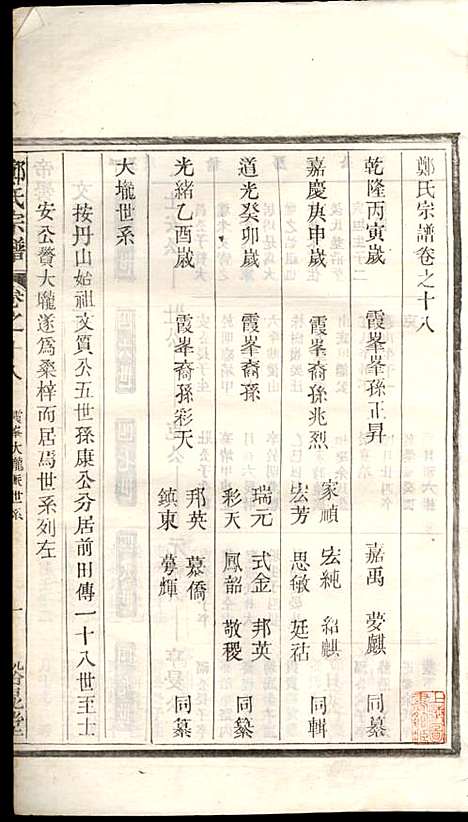 鄭氏宗譜卷之十八
乾隆丙寅歲 霞峯峯孫正昇 嘉禹 夢麒 同纂
嘉慶庚申歲 霞峯裔孫兆烈 家禎 宏純 紹麒 宏芳 思敏 廷祜 同輯
道光癸卯歲 霞峯裔孫 瑞元 式金 邦英 彩天 鳳韶 敬稷 同纂
光緒乙酉歲 霞峯裔孫彩天 邦英 慕僑 鎮東 蕚輝 同纂
大壠世系
按丹山始祖文質公五世孫康公分居前田傳一十八世至士
安公贅大壠遂為桑梓而居焉世系列左
鄭氏宗譜 卷之十八 霞峯大壠派世系 一